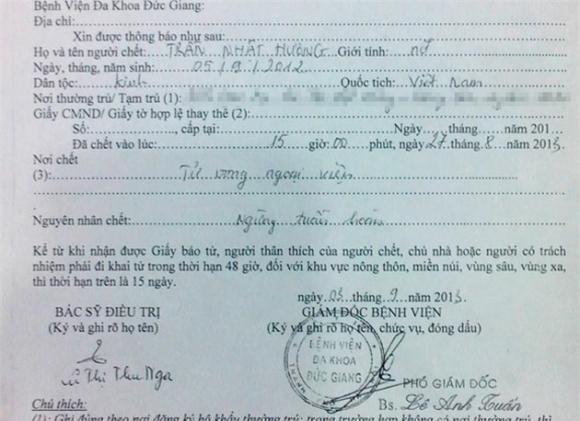 Bệnh Viện Đa Khoa Đức Giang:
Địa chỉ:
Xin được thông báo như sau:
Họ và tên người chết: TRẦN NHẬT HƯƠNG Giới tính: nữ
Ngày, tháng, năm sinh: 05/9/2012
Dân tộc: kinh Quốc tịch: Việt Nam
Nơi thường trú/ Tạm trú (1):
Giấy CMND/ Giấy tờ hợp lệ thay thế (2):
Số: , cấp tại: Ngày tháng năm 201
Đã chết vào lúc: 15 giờ: 00 phút, ngày 27 tháng 8 năm 2013
Nơi chết
(3): Tử vong ngoại viện
Nguyên nhân chết: Ngừng tuần hoàn
Kể từ khi nhận được Giấy báo tử, người thân thích của người chết, chủ nhà hoặc người có trách
nhiệm phải đi khai tử trong thời hạn 48 giờ, đối với khu vực nông thôn, miền núi, vùng sâu, vùng xa,
thì thời hạn trên là 15 ngày.
ngày 03 tháng 9 năm 2013
BÁC SỸ ĐIỀU TRỊ GIÁM ĐỐC BỆNH VIỆN
(Ký và ghi rõ họ tên) (Ký và ghi rõ họ tên, chức vụ, đóng dấu)
BỆNH VIỆN
ĐA KHOA
ĐỨC GIANG
Lê Thị Thu Nga
PHÓ GIÁM ĐỐC
Bs. Lê Anh Tuấn
Chú thích:
(1): Ghi đúng theo nơi đăng ký hộ khẩu thường trú; trong trường hợp không có nơi thường trú, thì